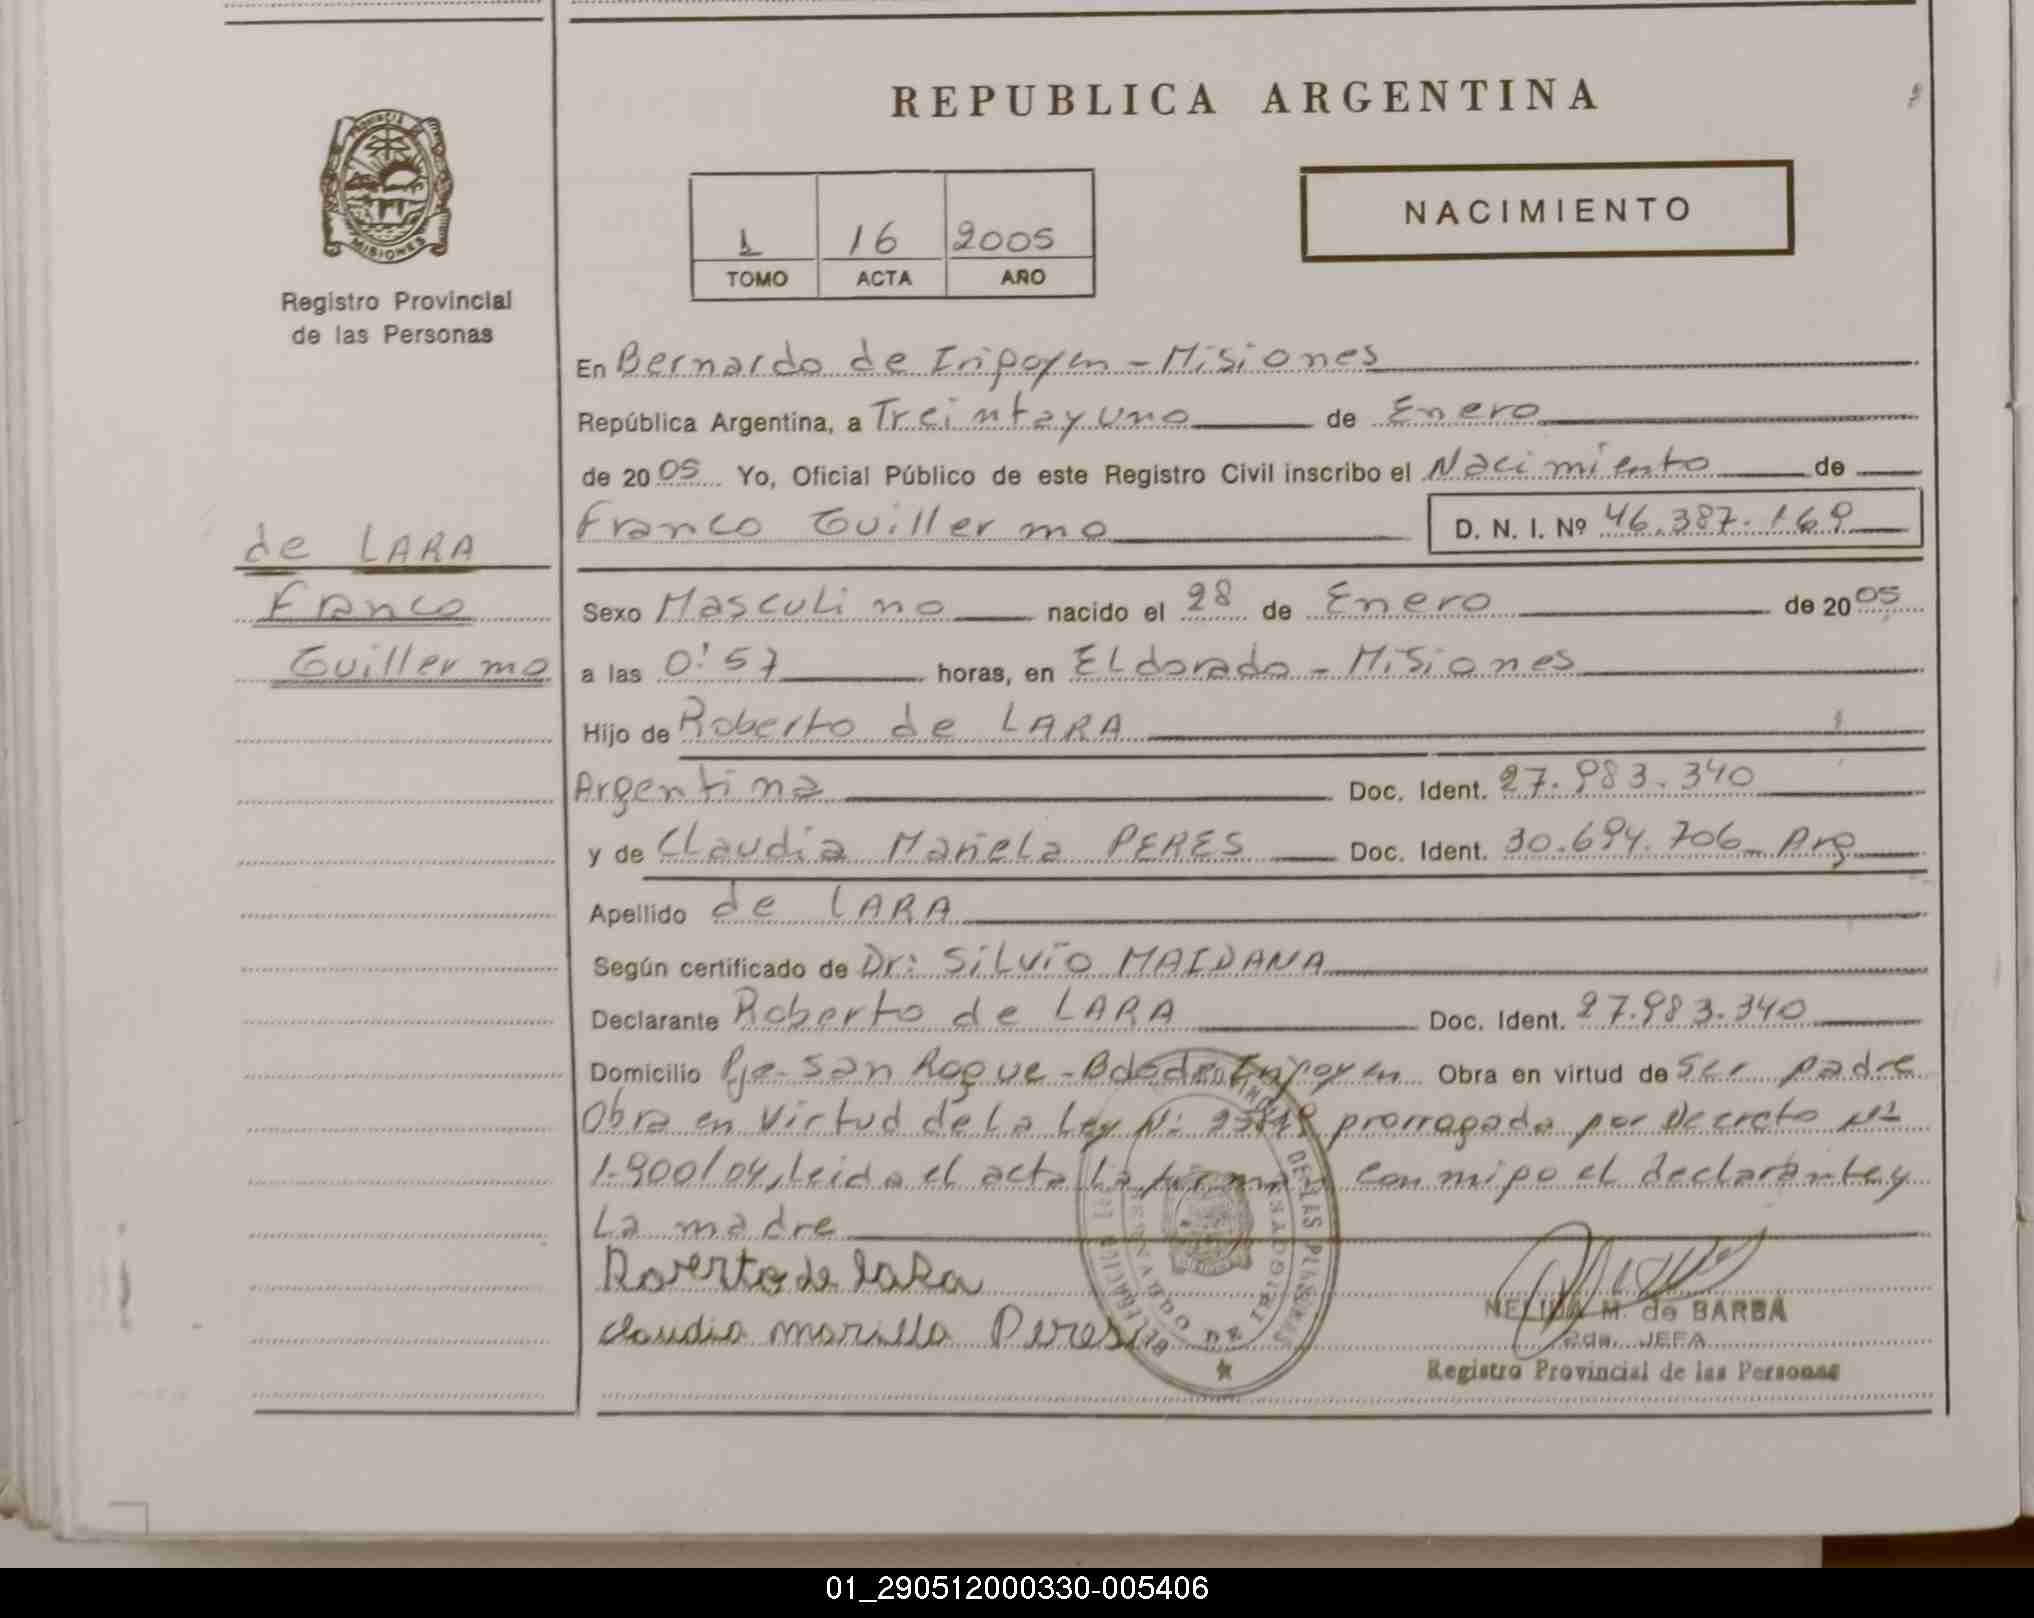 REPUBLICA ARGENTINA
PROVINCIA DE
MISIONES
Registro Provincial
de las Personas
NACIMIENTO
1 16 2005
TOMO ACTA AÑO
En Bernardo de Irigoyen - Misiones
República Argentina, a Treinta y uno de Enero
de 2005 Yo, Oficial Público de este Registro Civil inscribo el Nacimiento de
Franco Guillermo D. N. I. Nº 46.387.169
de LARA
Franco
Guillermo
Sexo Masculino nacido el 28 de Enero de 2005
a las 0:57 horas, en ELdorado - Misiones
Hijo de Roberto de LARA
Argentina Doc. Ident. 27.983.340
y de Claudia Mariela PERES Doc. Ident. 30.694.706 Arg
Apellido de LARA
Según certificado de Dr: Silvio MAIDANA
Declarante Roberto de LARA Doc. Ident. 27.983.340
Domicilio Pje- San Roque - Bdo de Irigoyen Obra en virtud de Ser padre
Obra en virtud de La Ley Nº prorrogada por Decreto Nº
1.900/04, leida el acta La firman conmigo el declarante y
La madre
Roverto de laRa
claudia mariela Peres
NELIDA M. de BARBA
2da. JEFA
Registro Provincial de las Personas
01_290512000330-005406